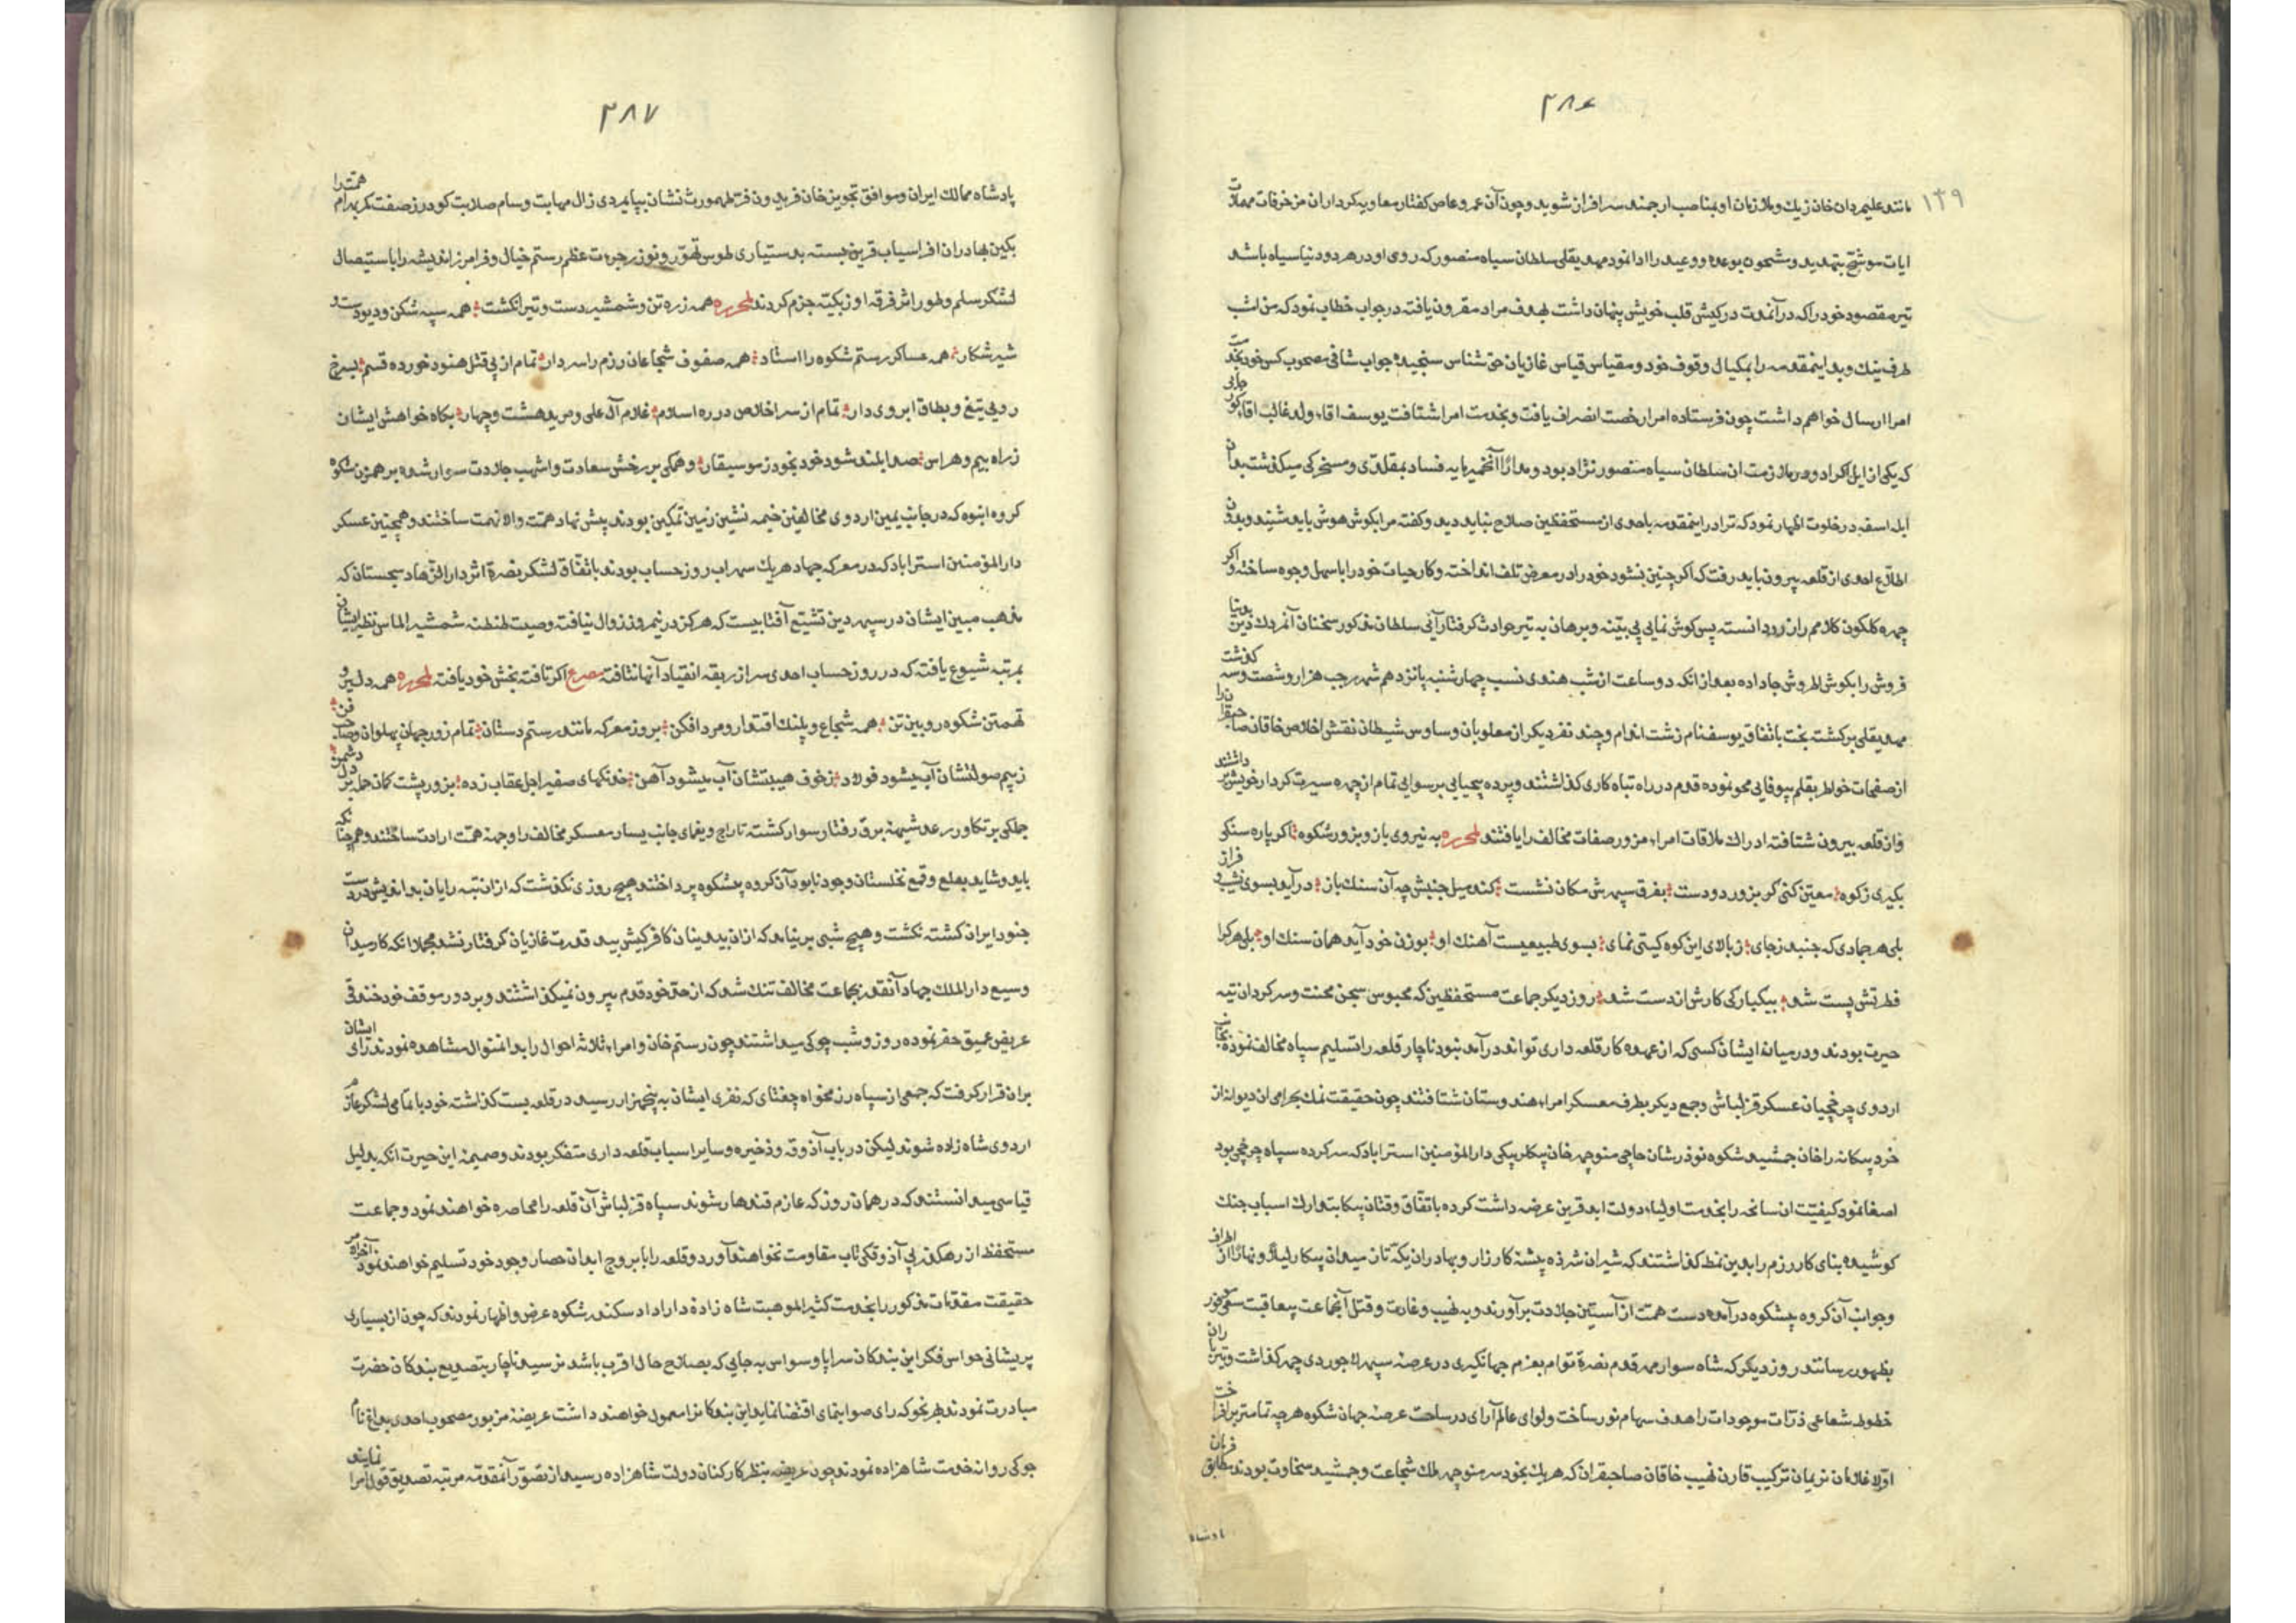 ۲۸۶
۱۴۹
مانند علیمردان خان زیك و ملازمان او بمناصب ارجمند سرافراز شوید و چون آن عمرو عاص گفتار معاویه کردار ان مزخرفات مهملات
ایات موشح بتهدید و مشحون بوعده و وعید را ادا نمود مهدیقلی سلطان سیاه منصور که روی او در هر دو دنیا سیاه باشد
تیر مقصود خود را که در آنمدت در کیش قلب خویش پنهان داشت بهدف مراد مقرون یافته در جواب خطاب نمود که من اشب
طرف نیك و بد اینمقدمه را بمکیال وقوف خود و مقیاس قیاس غازیان حق شناس سنجیده جواب شافی مصحوب کس خود بخدمت
امرا ارسال خواهم داشت چون فرستاده امرا رخصت انصراف یافت و بخدمت امرا شتافت یوسف اقاء ولد غالب اقاء
که یکی از ایل اکراد و در ملازمت ان سلطان سیاه منصور نژاد بود و مدار آنخمیرمایه فساد بمقلدی و مسخرکی میکذشت بدان
ابله اسفه در خلوت اظهار نمود که ترا در اینمقدمه باحدی از مستحفظین صلاح نباید دید و کفته مرا بکوش هوش باید شنید و بدون
اطلاع احدی از قلعه بیرون باید رفت که اکر چنین نشود خود را در معرض تلف انداخته و کار حیات خود را باسهل وجوه ساخته و اکر
چهره کلکون کلامم را زرد دانسته پس کوش نمایی بی بینه و برهان به تیر حوادث گرفتار آئی سلطان مذکور سخنان آنمردك دین بدنیا
فروش را بکوش اطروش جا داده بعد از انکه دو ساعت از شب هندی نسب چهارشنبه پانزدهم شهر رجب هزار و شصت و سه کذشت
مهدیقلی برکشته بخت باتفاق یوسفنام زشت اندام و چند نفر دیکر از مغلوبان وساوس شیطان نقش اخلاص خاقان صاحبقران را
از صفحات خواطر بقلم بیوفایی محو نموده قدم در راه تباه کاری کذاشتند و پرده بیحیایی برسوایی تمام از چهره سیرت کردار خویش برداشتند
و از قلعه بیرون شتافته ادراك ملاقات امراء مزور صفات مخالف را یافتند لمحرره به نیروی بازو بزور شکوه اکر پاره سنکی
بکیری ز کوه معین کنی کر بزور دو دست بفرق سپهرش مکان نشست کند میل جنبش چه آن سنك باز در آید بسوی نشیب و فراز
بلی هر جمادی که جنبد ز جای ز بالای این کوه کیتی نمای بسوی طبیعیست آهنك او بوزن خود آید همان سنك او بلی هر کرا
فطرتش پست شد بیکبارکی کارش از دست شد روز دیکر جماعت مستحفظین که محبوس سجن محنت و سرکردان تیه
حیرت بودند و در میانه ایشان کسی که از عهده کار قلعه داری تواند در آمد نبود ناچار قلعه را تسلیم سپاه مخالف نموده بجانب
اردوی چرخچیان عسکر قزلباش و جمع دیکر بطرف معسکر امراء هندوستان شتافتند چون حقیقت نمك بحرامی ان دیوانه از
خرد بیکانه را خان جمشید شکوه نوذر شان حاجی منوچهر خان بیکلربیکی دارالمؤمنین استراباد که سرکرده سپاه چرخچی بود
اصغا نمود کیفیت ان سانحه را بخدمت اولیاء دولت ابد قرین عرضه داشت کرده باتفاق وقتان بیکا بتدارك اسباب جنك
کوشیده بنای کار رزم را بدین نمط کذاشتند که شیران شرزه پیشه کارزار و بهادران یکه تاز میدان پیکار لیلا و نهارا از اطراف
و جوانب آن کروه بیشکوه در آمده دست همت از آستین جلادت برآورند و به نهیب و غارت و قتل آنجماعت بیعاقبت سعی موفور
بظهور رسانند روز دیکر که شاه سوار مهر قدم نصرة توام بعزم جهانکیری در عرصه سپهر لاجوردی چهر کذاشت و تیرباران
خطوط شعاعی ذرات موجودات را هدف سهام نور ساخت و لوای عالم آرای در ساحت عرصه جهان شکوه هر چه تمامتر برافراخت
اولا غازیان نریمان ترکیب قارن نهیب خاقان صاحبقران که هر یك بخود سر منوچهر ملك شجاعت و جمشید سخاوت بودند مطابق فرمان
پادشاه
۲۸۷
پادشاه ممالك ایران و موافق تجویز خان فریدون فر طهمورث نشان بپایمردی زال مهابت و سام صلابت کودرز صفت کمر بهرام همت را
بکین بهادران افراسیاب قرین بسته بدستیاری طوس تهور و نوذر جرءت عظم رستم خیال و فرامرز اندیشه را باستیصال
لشکر سلم و طور اثر فرقه اوزبکیه جزم کردند لمحرره همه زره تن و شمشیر دست و تیر انکشت همه سپه شکن و دیو دست و
شیر شکار همه عساکر رستم شکوه را استاد همه صفوف شجاعان رزم را سردار تمام از پی قتل هنود خورده قسم بسرخ
رویی تیغ و بطاق ابروی دار تمام از سر اخلاص در ره اسلام غلام آل علی و مرید هشت و چهار بکاه خواهش ایشان
ز راه بیم و هراس صدا بلند شود خود بخود ز موسیقار و همکی بر رخش سعادت و اشهب جلادت سوار شده بر همزن شکوه
کروه انبوه که در جانب یمین اردوی مخالفین خیمه نشین زمین تمکین بودند پیش نهاد همت والا نهمت ساختند و همچنین عسکر
دارالمؤمنین استراباد که در معرکه جهاد هر یك سهراب روز حساب بودند باتفاق لشکر نصرة اثر دارالزهاد سجستان که
مذهب مبین ایشان در سپهر دین تشیع آفتابیست که هرکز در نیمروز زوال نیافته و صیت طنطنه شمشیر الماس نظیر ایشان
بمرتبه شیوع یافته که در روز حساب احدی سر از ربقه انقیاد آنها نتافته مصرع اکر تافته بخش خود یافته لمحرره همه دلیر و
تهمتن شکوه رویین تن همه شجاع و پلنك اقتدار و مرد افکن بروز معرکه مانند رستم دستان تمام زور جهان پهلوان و صاحب فن
ز بیم صولتشان آب میشود فولاد ز خوف هیبتشان آب میشود آهن خدنکهای صفیر اجل عقاب زده بزور پشت کمان جمله بر دل دشمن
جملکی بر تکاور رعد شیهه برق رفتار سوار کشته تاراج و یغمای جانب یسار معسکر مخالف را وجهه همت ارادت ساختند و همچنانکه
باید و شاید بقلع و قمع نخلستان وجود نابود آن کروه بیشکوه پرداختند هیچ روزی نکذشت که از ان تبه رایان بداندیش در دست
جنود ایران کشته نکشت و هیچ شبی بر نیامد که از ان بیدینان کافر کیش بید قدرت غازیان کرفتار نشد مجملا انکه کار میدان
وسیع دارالملك جهاد آنقدر بجماعت مخالف تنك شد که از حد خود قدم بیرون نمیکذاشتند و بر دور موقف خود خندقی
عریض عمیق حفر نموده روز و شب چوکی میداشتند چون رستم خان و امراء ثلاثه احوال را بدانمنوال مشاهده نمودند رای ایشان
بران قرار کرفت که جمعی از سپاه رزمخواه چغتای که نفری ایشان به پنجهزار رسید در قلعه بست کذاشته خود با تمامی لشکر عازم
اردوی شاه زاده شوند لیکن در باب آذوقه و ذخیره و سایر اسباب قلعه داری متفکر بودند و ضمیمه این حیرت انکه بدلیل
قیاسی میدانستند که در همان روز که عازم قندهار شوند سپاه قزلباش آن قلعه را محاصره خواهند نمود و جماعت
مستحفظ از رهکذر بی آذوقکی تاب مقاومت نخواهند آورد و قلعه را با بروج ابدان حصار وجود خود تسلیم خواهند نمود آخر الامر
حقیقت مقدمات مذکور را بخدمت کثیر الموهبت شاه زاده دارا داد سکندر شکوه عرض و اظهار نمودند که چون از بسیاری
پریشانی حواس فکر این بندکان سراپا وسواس به جایی که بصلاح حال اقرب باشد نرسید ناچار بتصدیع بندکان حضرت
مبادرت نمودند بهر نحو که رای صوابنمای اقتضا نماید این بندکانرا معمول خواهند داشت عریضه مزبور مصحوب احدی بداغ نام
چوکی روانه خدمت شاهزاده نمودند و چون عریضه بنظر کارکنان دولت شاهزاده رسید از تصور آنمقدمه مرتبه تصدیق قول امرا نمایند